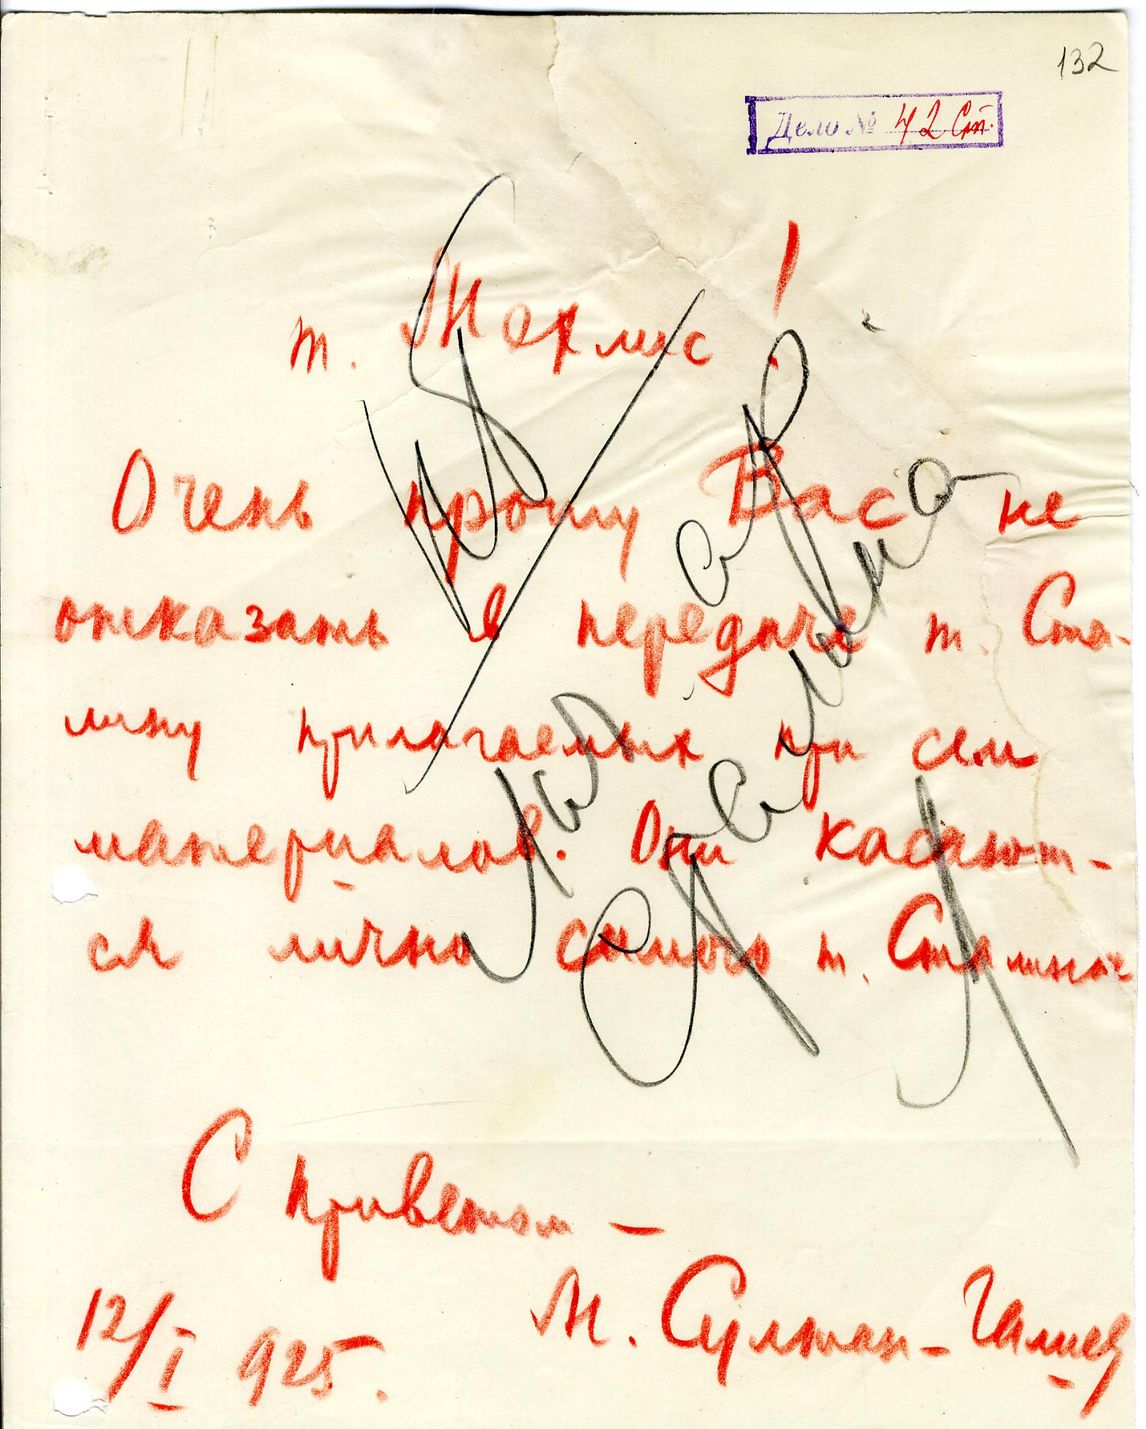 132
Дело № 42 Ст.
т. Мехлис!
Очень прошу Вас не
отказать в передаче т. Ста-
лину прилагаемых при сем
материалов. Они касают-
ся лично самого т. Сталина
С приветом —
12/I 925.
М. Султан-Галиев